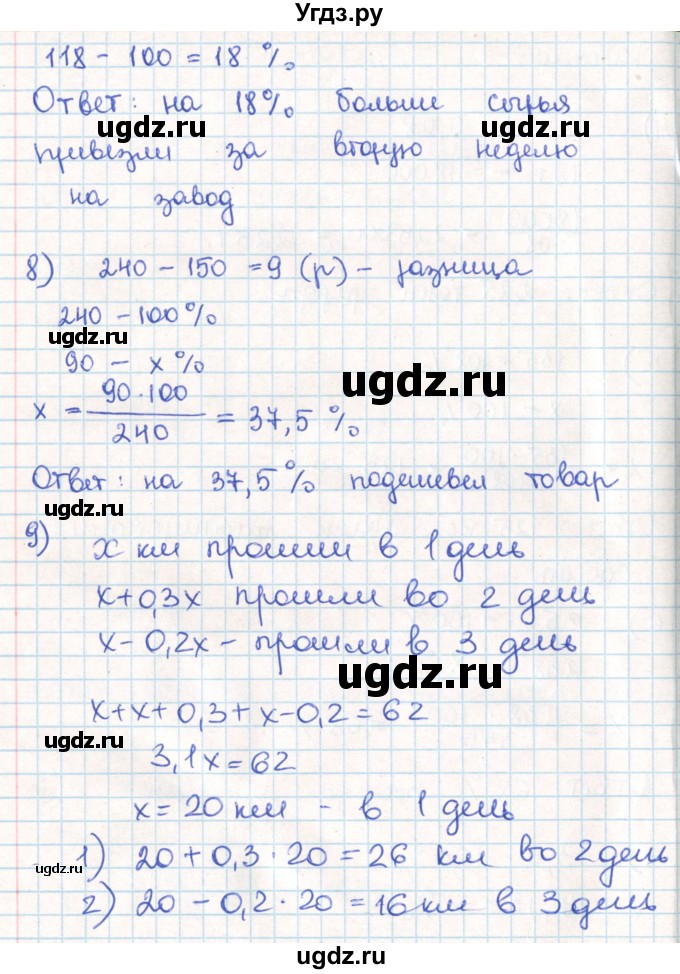 Угдз.ру
118 - 100 = 18 %
Ответ: на 18% больше сырья
ugdz.ru ugdz.ru
привезли за вторую неделю
на завод
8) 240 - 150 = 9 (р) - разница
240 - 100%
ugdz.ru
90 - х %
ugdz.ru
х = 90·100/240 = 37,5 %
Ответ: на 37,5% подешевел товар
ugdz.ru
9) х км прошли в 1 день
х+0,3х прошли во 2 день
х - 0,2х - прошли в 3 день
ugdz.ru
х+х+0,3+х-0,2=62
ugdz.ru
3,1х=62
х=20 км - в 1 день
1) 20+0,3·20=26 км во 2 день
ugdz.ru
2) 20-0,2·20=16 км в 3 день
ugdz.ru